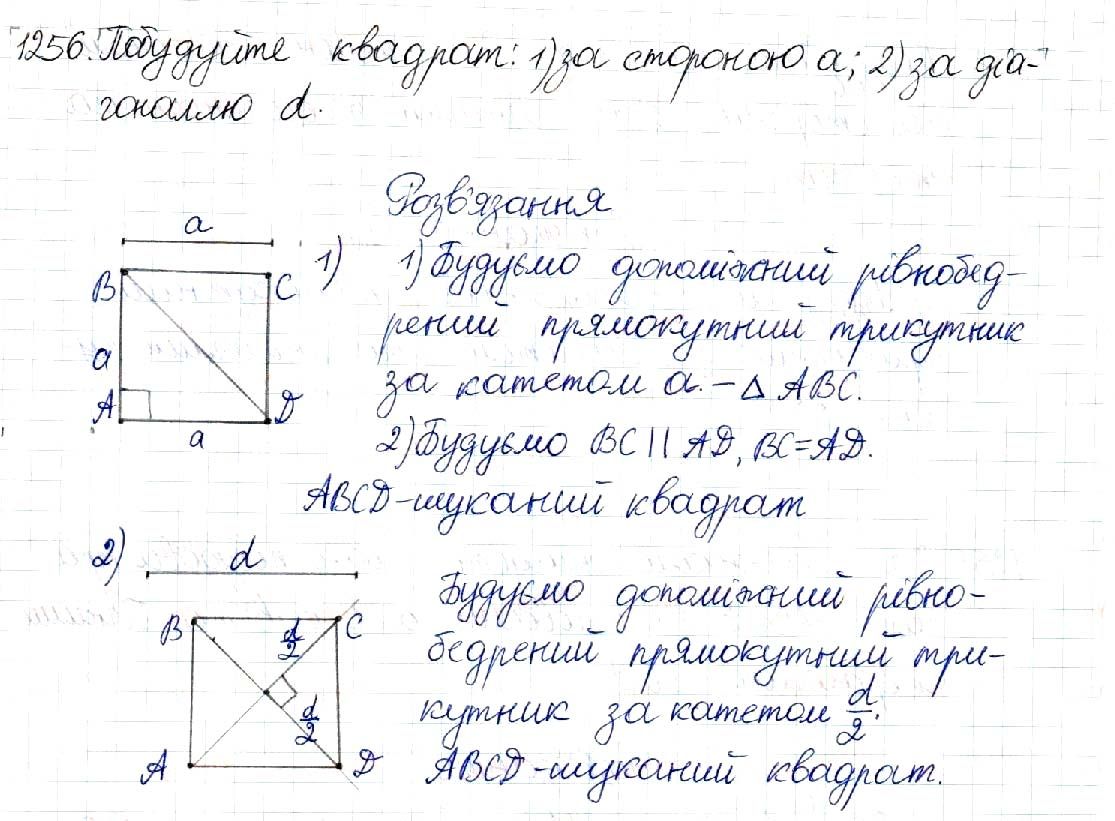 1256. Побудуйте квадрат: 1) за стороною a; 2) за діа-
гоналлю d.
Розв'язання
a
B
C
a
A
D
a
1) 1) Будуємо допоміжний рівнобед-
рений прямокутний трикутник
за катетом a. – △ ABC.
2) Будуємо BC || AD, BC=AD.
ABCD – шуканий квадрат
2)
d
B
C
d/2
d/2
A
D
Будуємо допоміжний рівно-
бедрений прямокутний три-
кутник за катетом d/2.
ABCD – шуканий квадрат.